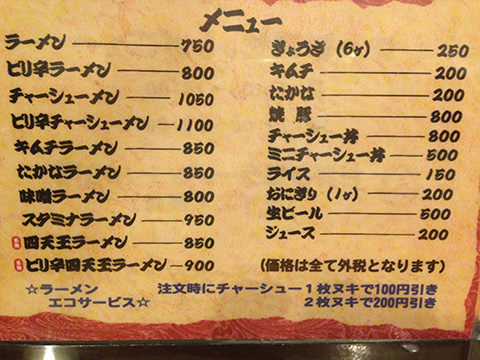 メニュー
ラーメン 750
ピリ辛ラーメン 800
チャーシューメン 1050
ピリ辛チャーシューメン 1100
キムチラーメン 850
たかなラーメン 850
味噌ラーメン 800
スタミナラーメン 950
四天王ラーメン 850
ピリ辛四天王ラーメン 900
ぎょうざ（6ヶ） 250
キムチ 200
たかな 200
焼豚 800
チャーシュー丼 800
ミニチャーシュー丼 500
ライス 150
おにぎり（1ヶ） 200
生ビール 500
ジュース 200
（価格は全て外税となります）
☆ラーメン
エコサービス☆
注文時にチャーシュー1枚ヌキで100円引き
2枚ヌキで200円引き